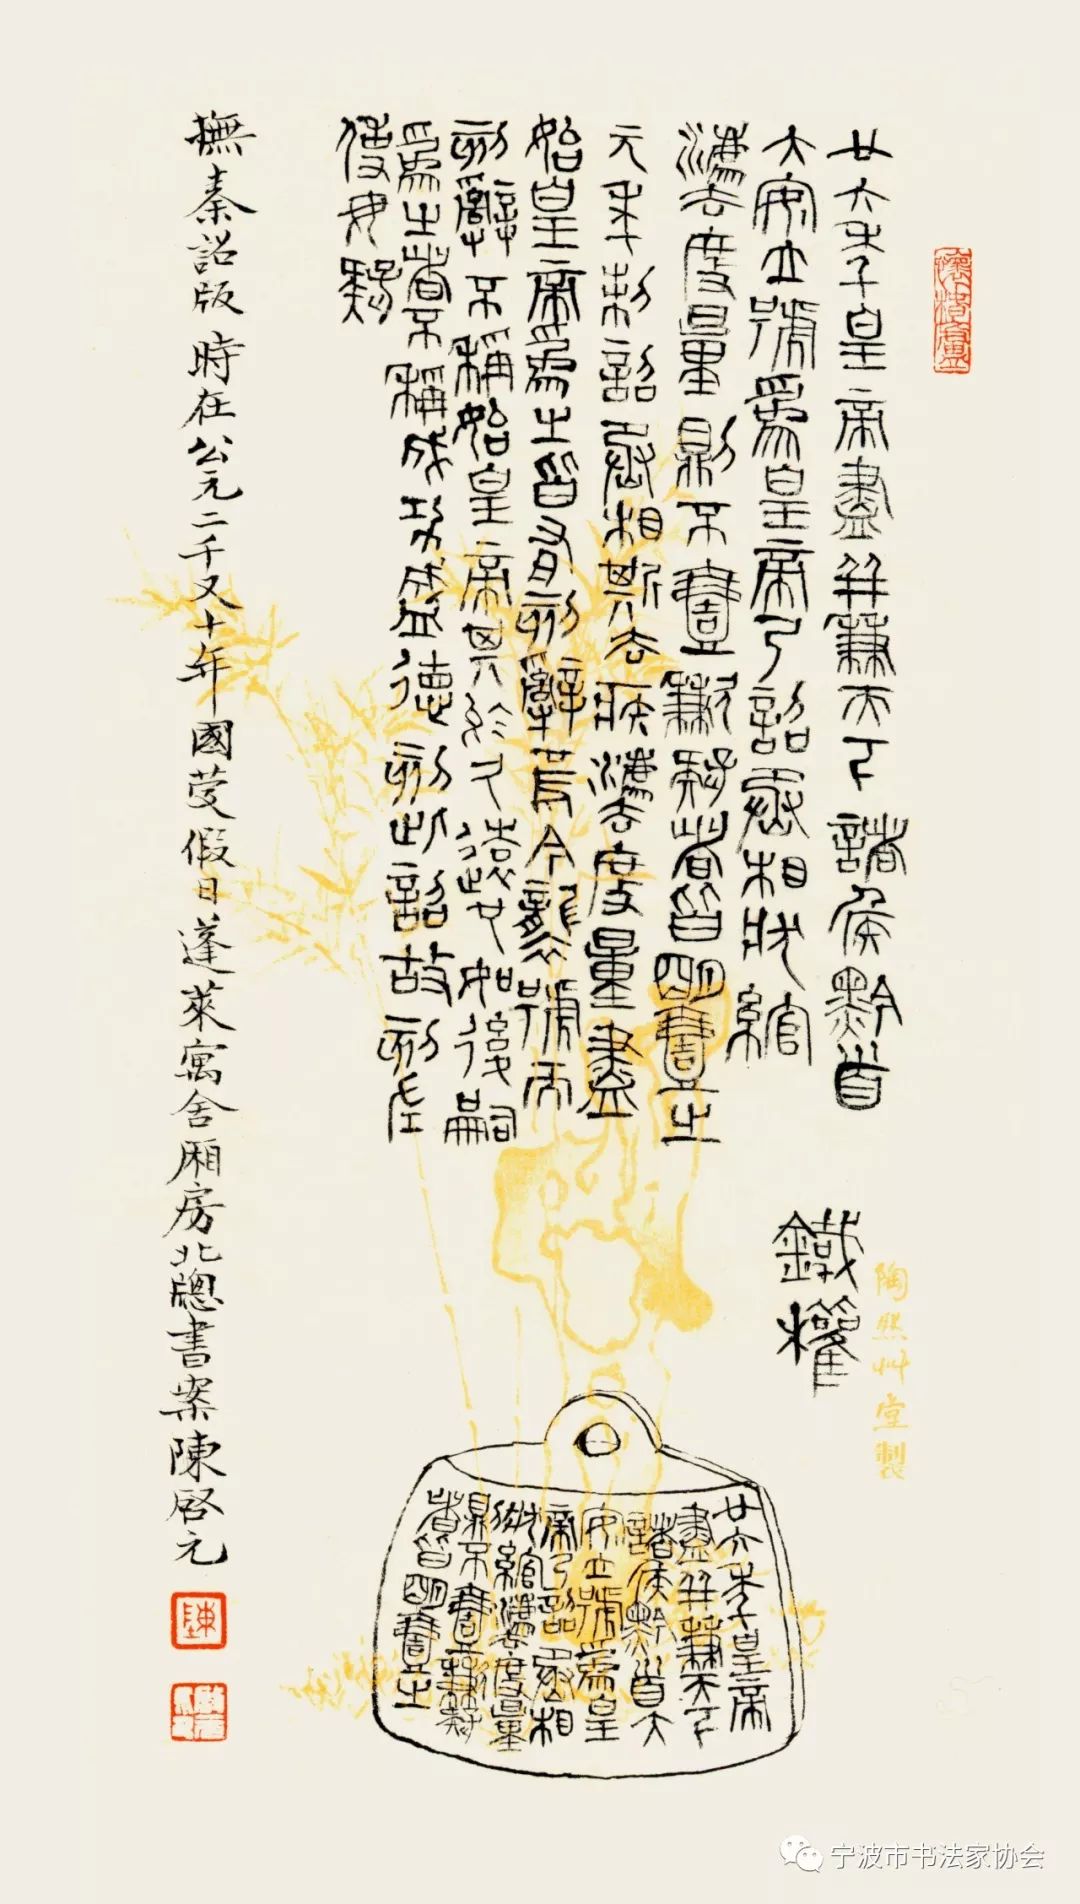 廿六年皇帝盡并兼天下諸侯黔首
大安立號爲皇帝乃詔丞相狀綰
灋度量則不壹歉疑者皆明壹之
元年制詔丞相斯去疾灋度量盡
始皇帝爲之皆有刻辭焉今襲號而
刻辭不稱始皇帝其於久遠也如後嗣
爲之者不稱成功盛德刻此詔故刻左
使毋疑
鐵權
陶熙艸堂製
廿六年皇帝
盡并兼天下
諸侯黔首大
安立號爲皇
帝乃詔丞相
狀綰灋度量
則不壹歉疑
者皆明壹之
撫秦詔版 時在公元二千又十年國慶假日蓬萊寓舍厢房北牕書案陳啓元
陳
宁波市书法家协会